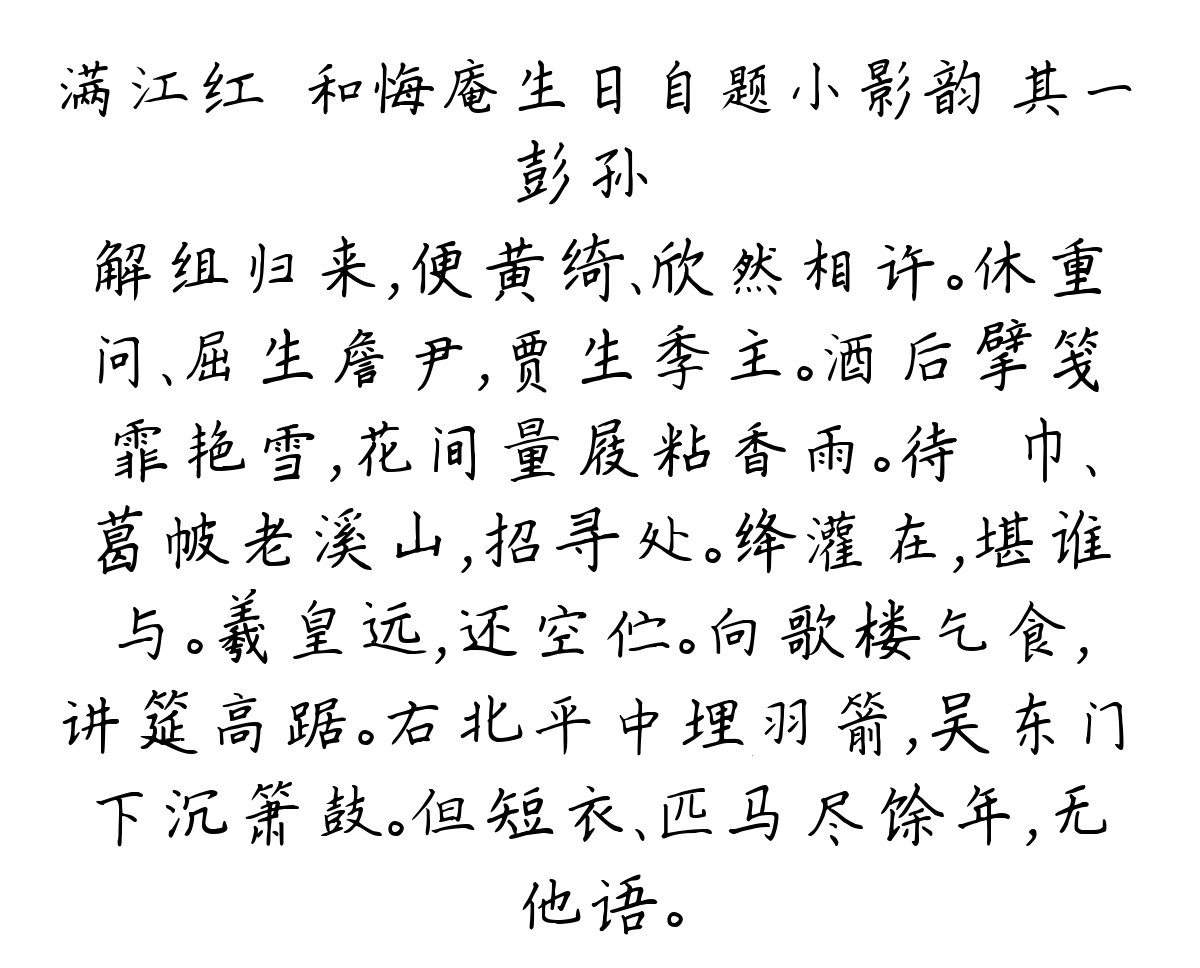 满江红 和悔庵生日自题小影韵 其一
彭孙
解组归来,便黄绮、欣然相许。休重
问、屈生詹尹,贾生季主。酒后擘笺
霏艳雪,花间量屐粘香雨。待 巾、
葛帔老溪山,招寻处。绛灌在,堪谁
与。羲皇远,还空伫。向歌楼乞食,
讲筵高踞。右北平中埋羽箭,吴东门
下沉箫鼓。但短衣、匹马尽馀年,无
他语。